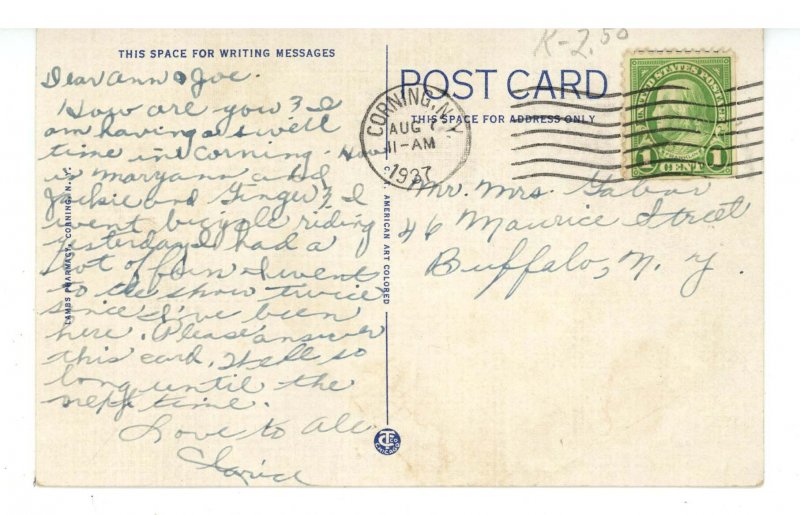 THIS SPACE FOR WRITING MESSAGES
Dear Ann & Joe.
How are you? I
am having a swell
time in Corning. How
is Maryann and
Jackie and Ginger? I
went bicycle riding
yesterday I had a
lot of fun. I went
to the show twice
since I've been
here. Please answer
this card. Well so
long until the
next time.
Love to All
LAMBS PHARMACY, CORNING, N. Y.
C.T. AMERICAN ART COLORED
CHICAGO
K-2.50
POST CARD
THIS SPACE FOR ADDRESS ONLY
CORNING, N.Y.
AUG 7
11-AM
1937
UNITED STATES POSTAGE
1 CENT 1
Mr. Mrs. Gabar
46 Maurice Street
Buffalo, N. Y.